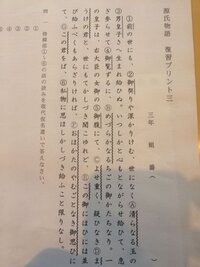 源氏物語 復習プリント三
三年 組 番(
①前の世にも、②御契りや深かりけむ、世になくⒶ清らなる玉の
③男皇子さへ生まれ給ひぬ。いつしかと心もとながらせ給ひて、急
ぎ参らせて④御覧ずるに、Ⓑめづらかなるちごの御かたちなり。一
の皇子は、右大臣の女御の⑤御腹にて、Ⓒよせ重く、疑ひなきⒹま
うけの君と、世にもてかしづき聞こゆれど、Ⓔこの御にほひには並
び給ふべくもあらざりければ、Ⓕおほかたのやむごとなき御思ひに
て、Ⓖこの君をば、⑥私物に思ほしかしづき給ふこと限りなし。
問一 傍線部①~⑥の語の読みを現代仮名遣いで答えなさい。
①
②
③
④